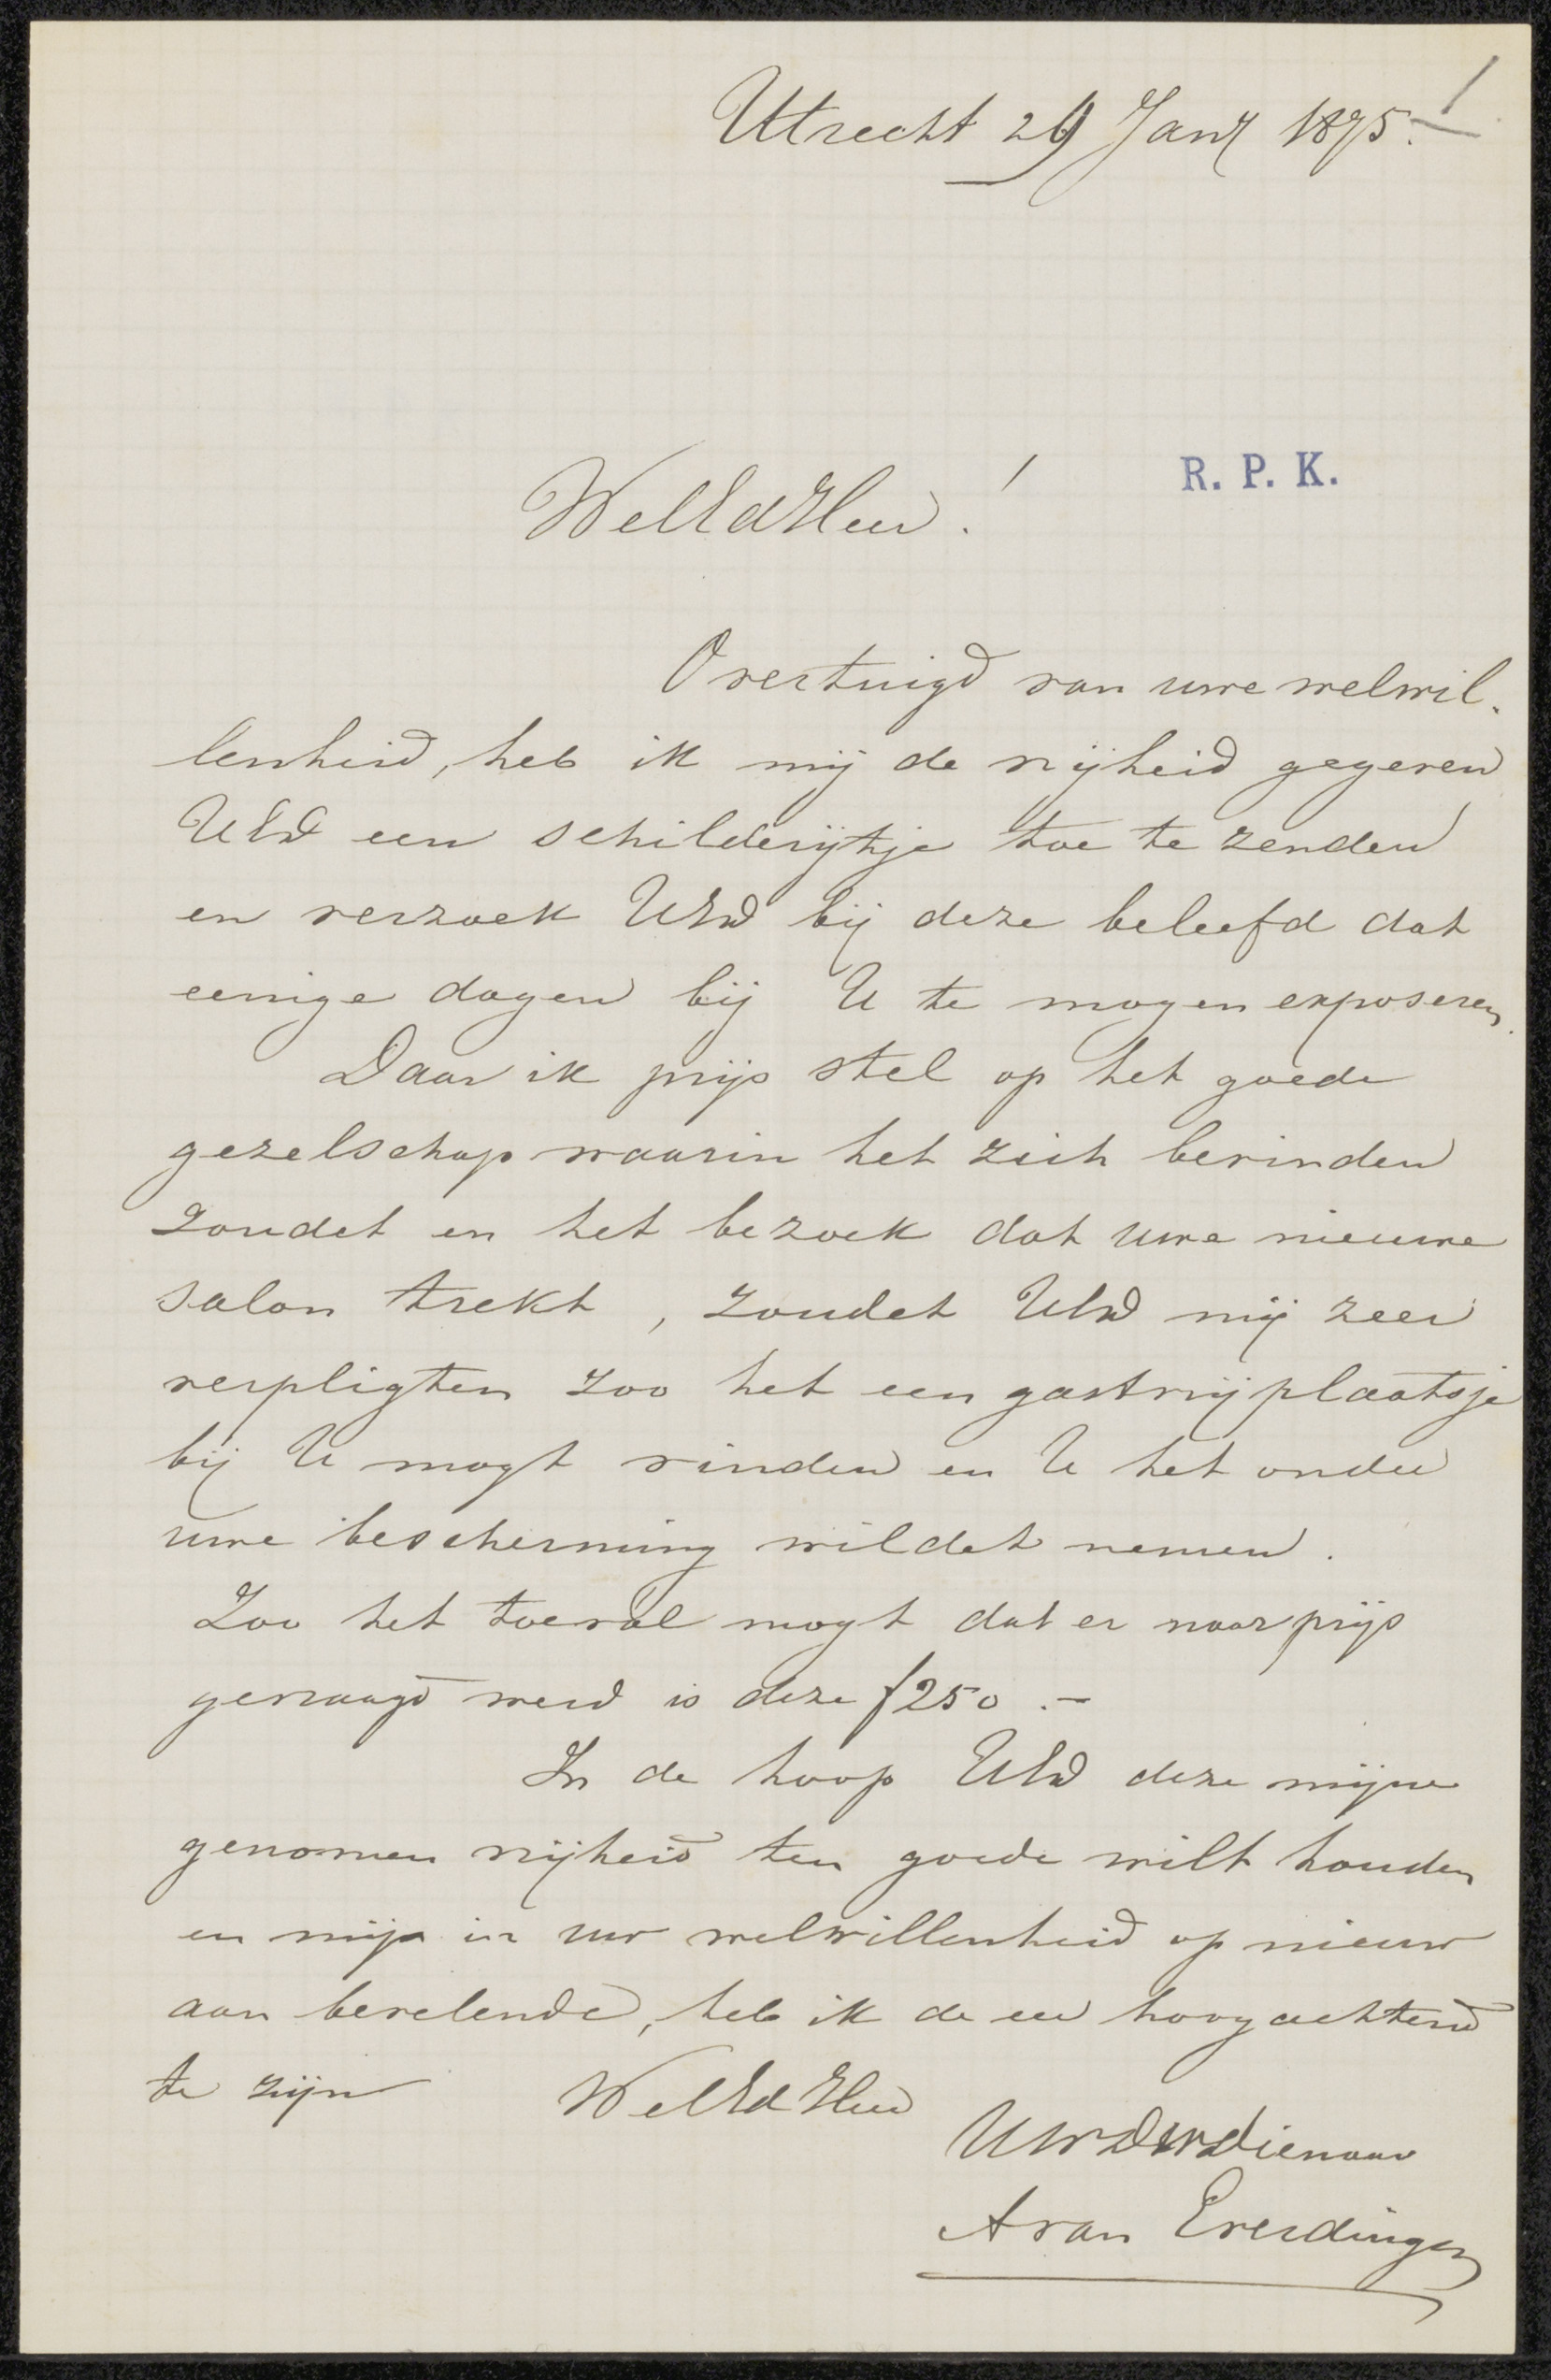 Utrecht 29 Jan^y 1875.
1
WelEdHeer!
R. P. K.
Overtuigd van uwe welwil-
lenheid, heb ik mij de vrijheid gegeven
UEd een schilderijtje toe te zenden
en verzoek UEd bij deze beleefd dat
eenige dagen bij U te mogen exposeren.
Daar ik prijs stel op het goede
gezelschap waarin het zich bevinden
zoudet en het bezoek dat uwe nieuwe
salon trekt, zoudet UEd mij zeer
verpligten zoo het een gastvrij plaatsje
bij U mogt vinden en U het onder
uwe bescherming wildet nemen.
Zoo het toeval mogt dat er naar prijs
gevraagd werd is deze f 250.-
In de hoop UEd deze mijne
genomen vrijheid ten goede wilt houden
en mijn in uw welwillenheid op nieuw
aan bevelende, heb ik de eer hoogachtend
te zijn WelEdHeer
UwDwdienaar
A van Everdingen